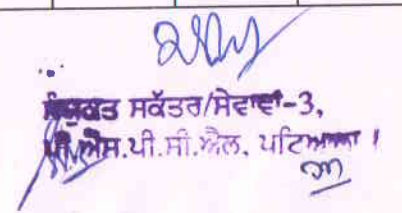 ਸੰਯੁਕਤ ਸਕੱਤਰ/ਸੇਵਾਵਾਂ-3,
ਪੀ.ਐਸ.ਪੀ.ਸੀ.ਐਲ. ਪਟਿਆਲਾ ।